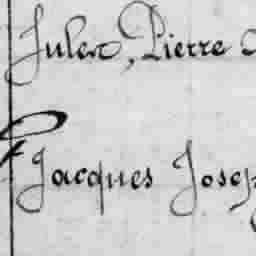 Jules, Pierre
Jacques Josep